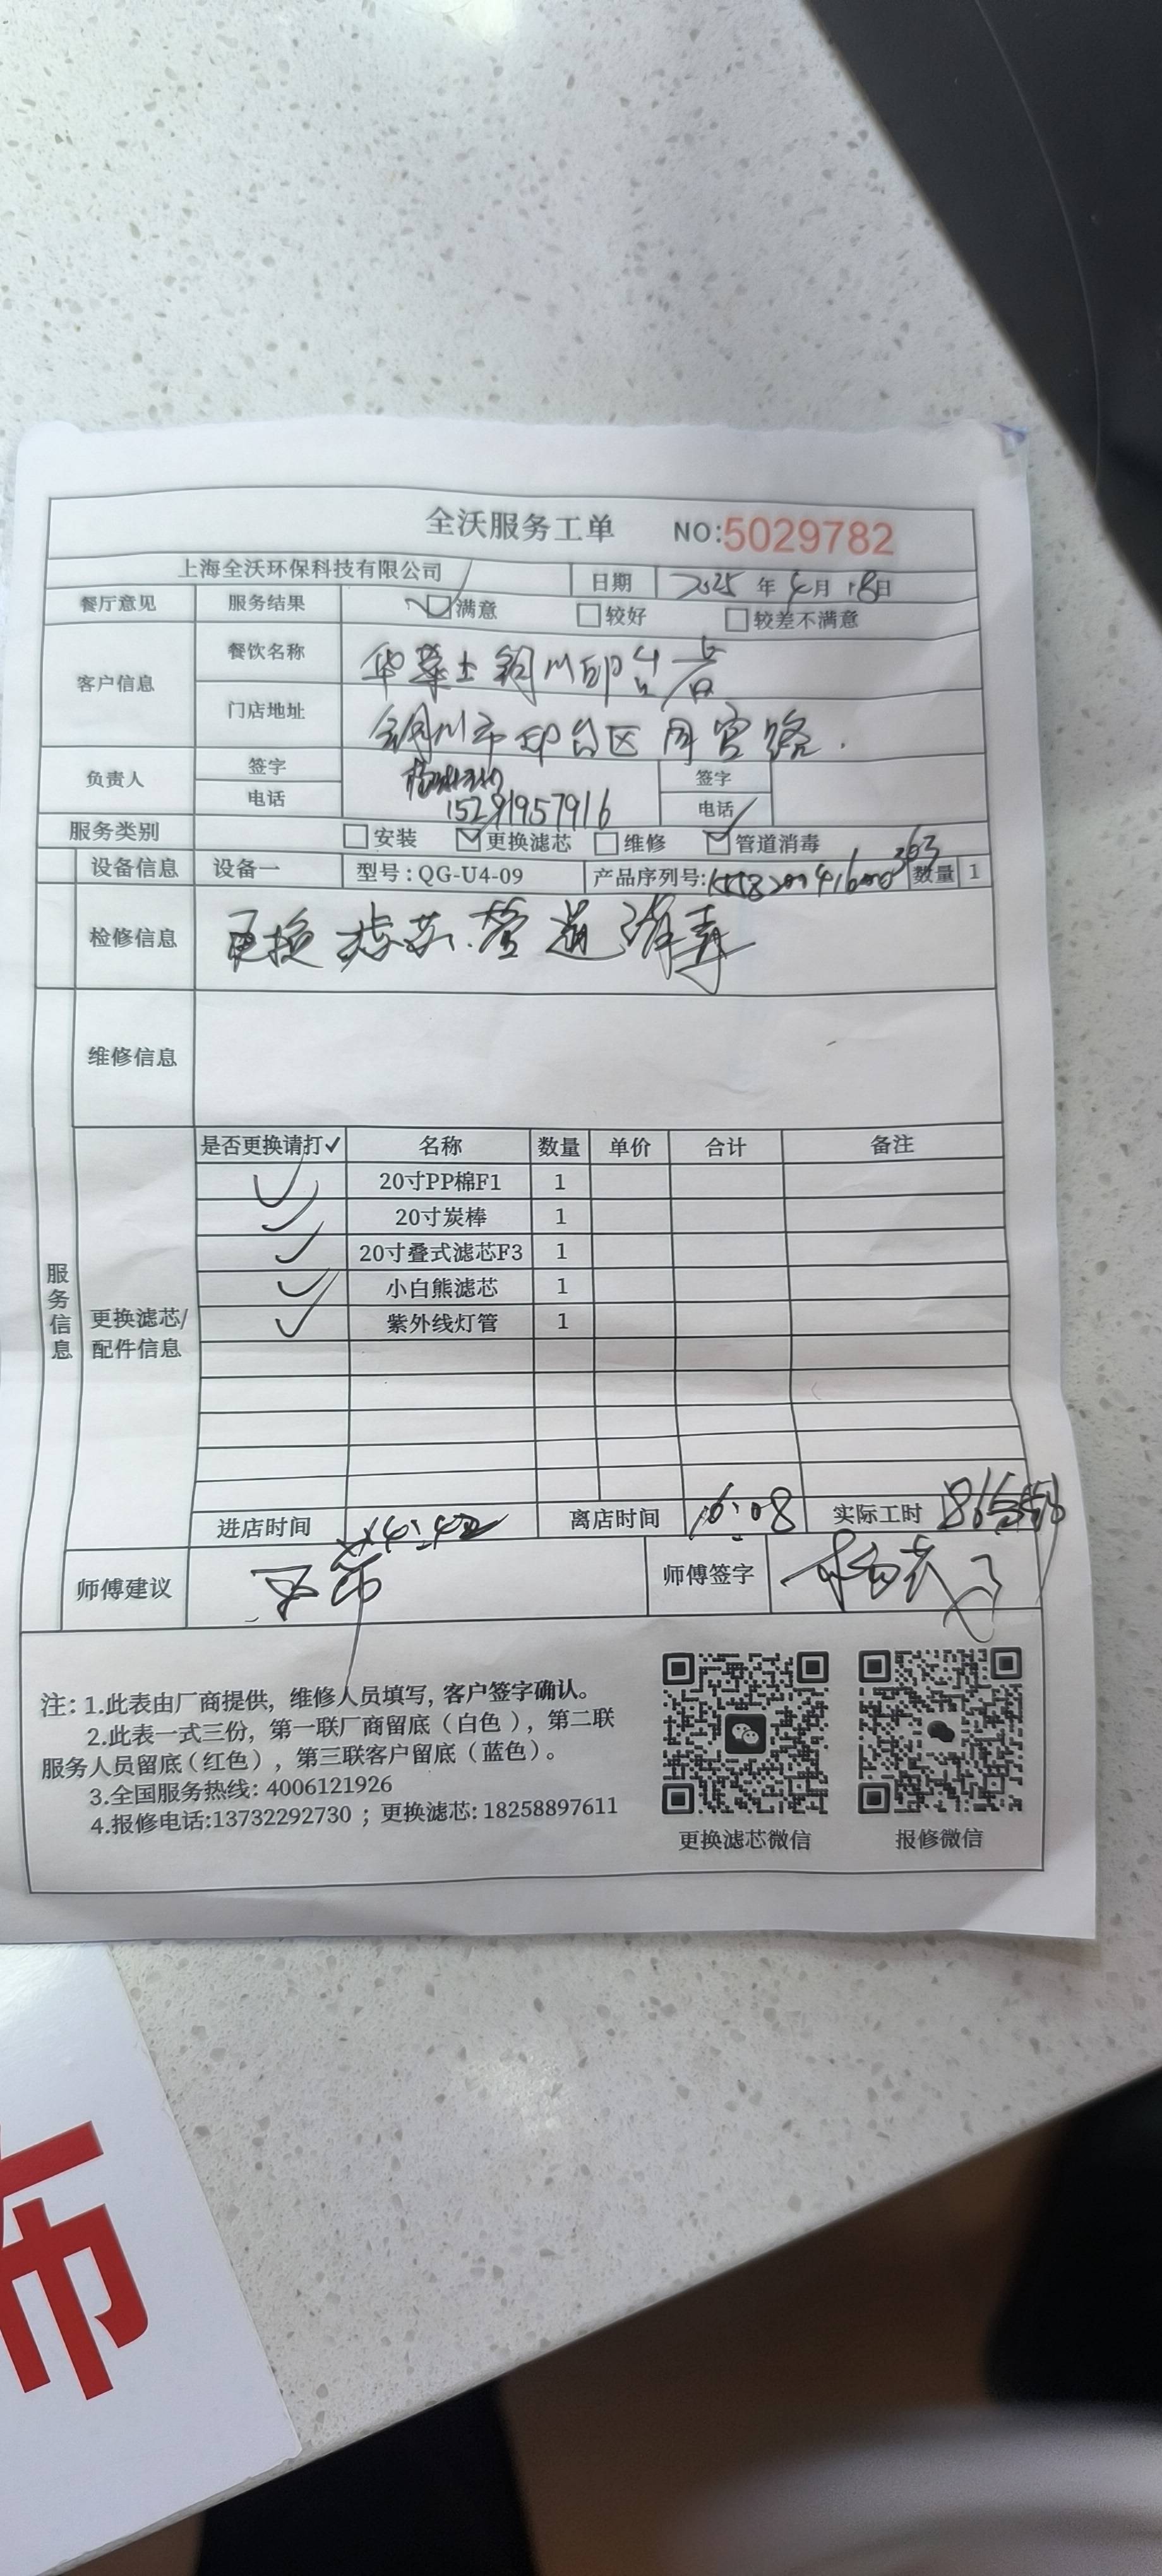 全沃服务工单 NO:5029782
上海全沃环保科技有限公司 日期 2025年4月18日
餐厅意见 服务结果 满意 较好 较差不满意
客户信息 餐饮名称 华莱士铜川印台店
门店地址 铜川市印台区同官路.
负责人 签字 签字
电话 15291957916 电话
服务类别 安装 更换滤芯 维修 管道消毒
设备信息 设备一 型号:QG-U4-09 产品序列号: 数量 1
检修信息 更换滤芯.管道消毒
维修信息
服务信息
更换滤芯/配件信息
是否更换请打✓ 名称 数量 单价 合计 备注
✓ 20寸PP棉F1 1
✓ 20寸炭棒 1
✓ 20寸叠式滤芯F3 1
✓ 小白熊滤芯 1
✓ 紫外线灯管 1
进店时间 14:42 离店时间 16:08 实际工时 86分钟
师傅建议 师傅签字
注: 1.此表由厂商提供, 维修人员填写, 客户签字确认。
2.此表一式三份, 第一联厂商留底(白色), 第二联
服务人员留底(红色), 第三联客户留底(蓝色)。
3.全国服务热线: 4006121926
4.报修电话:13732292730 ; 更换滤芯: 18258897611
更换滤芯微信 报修微信